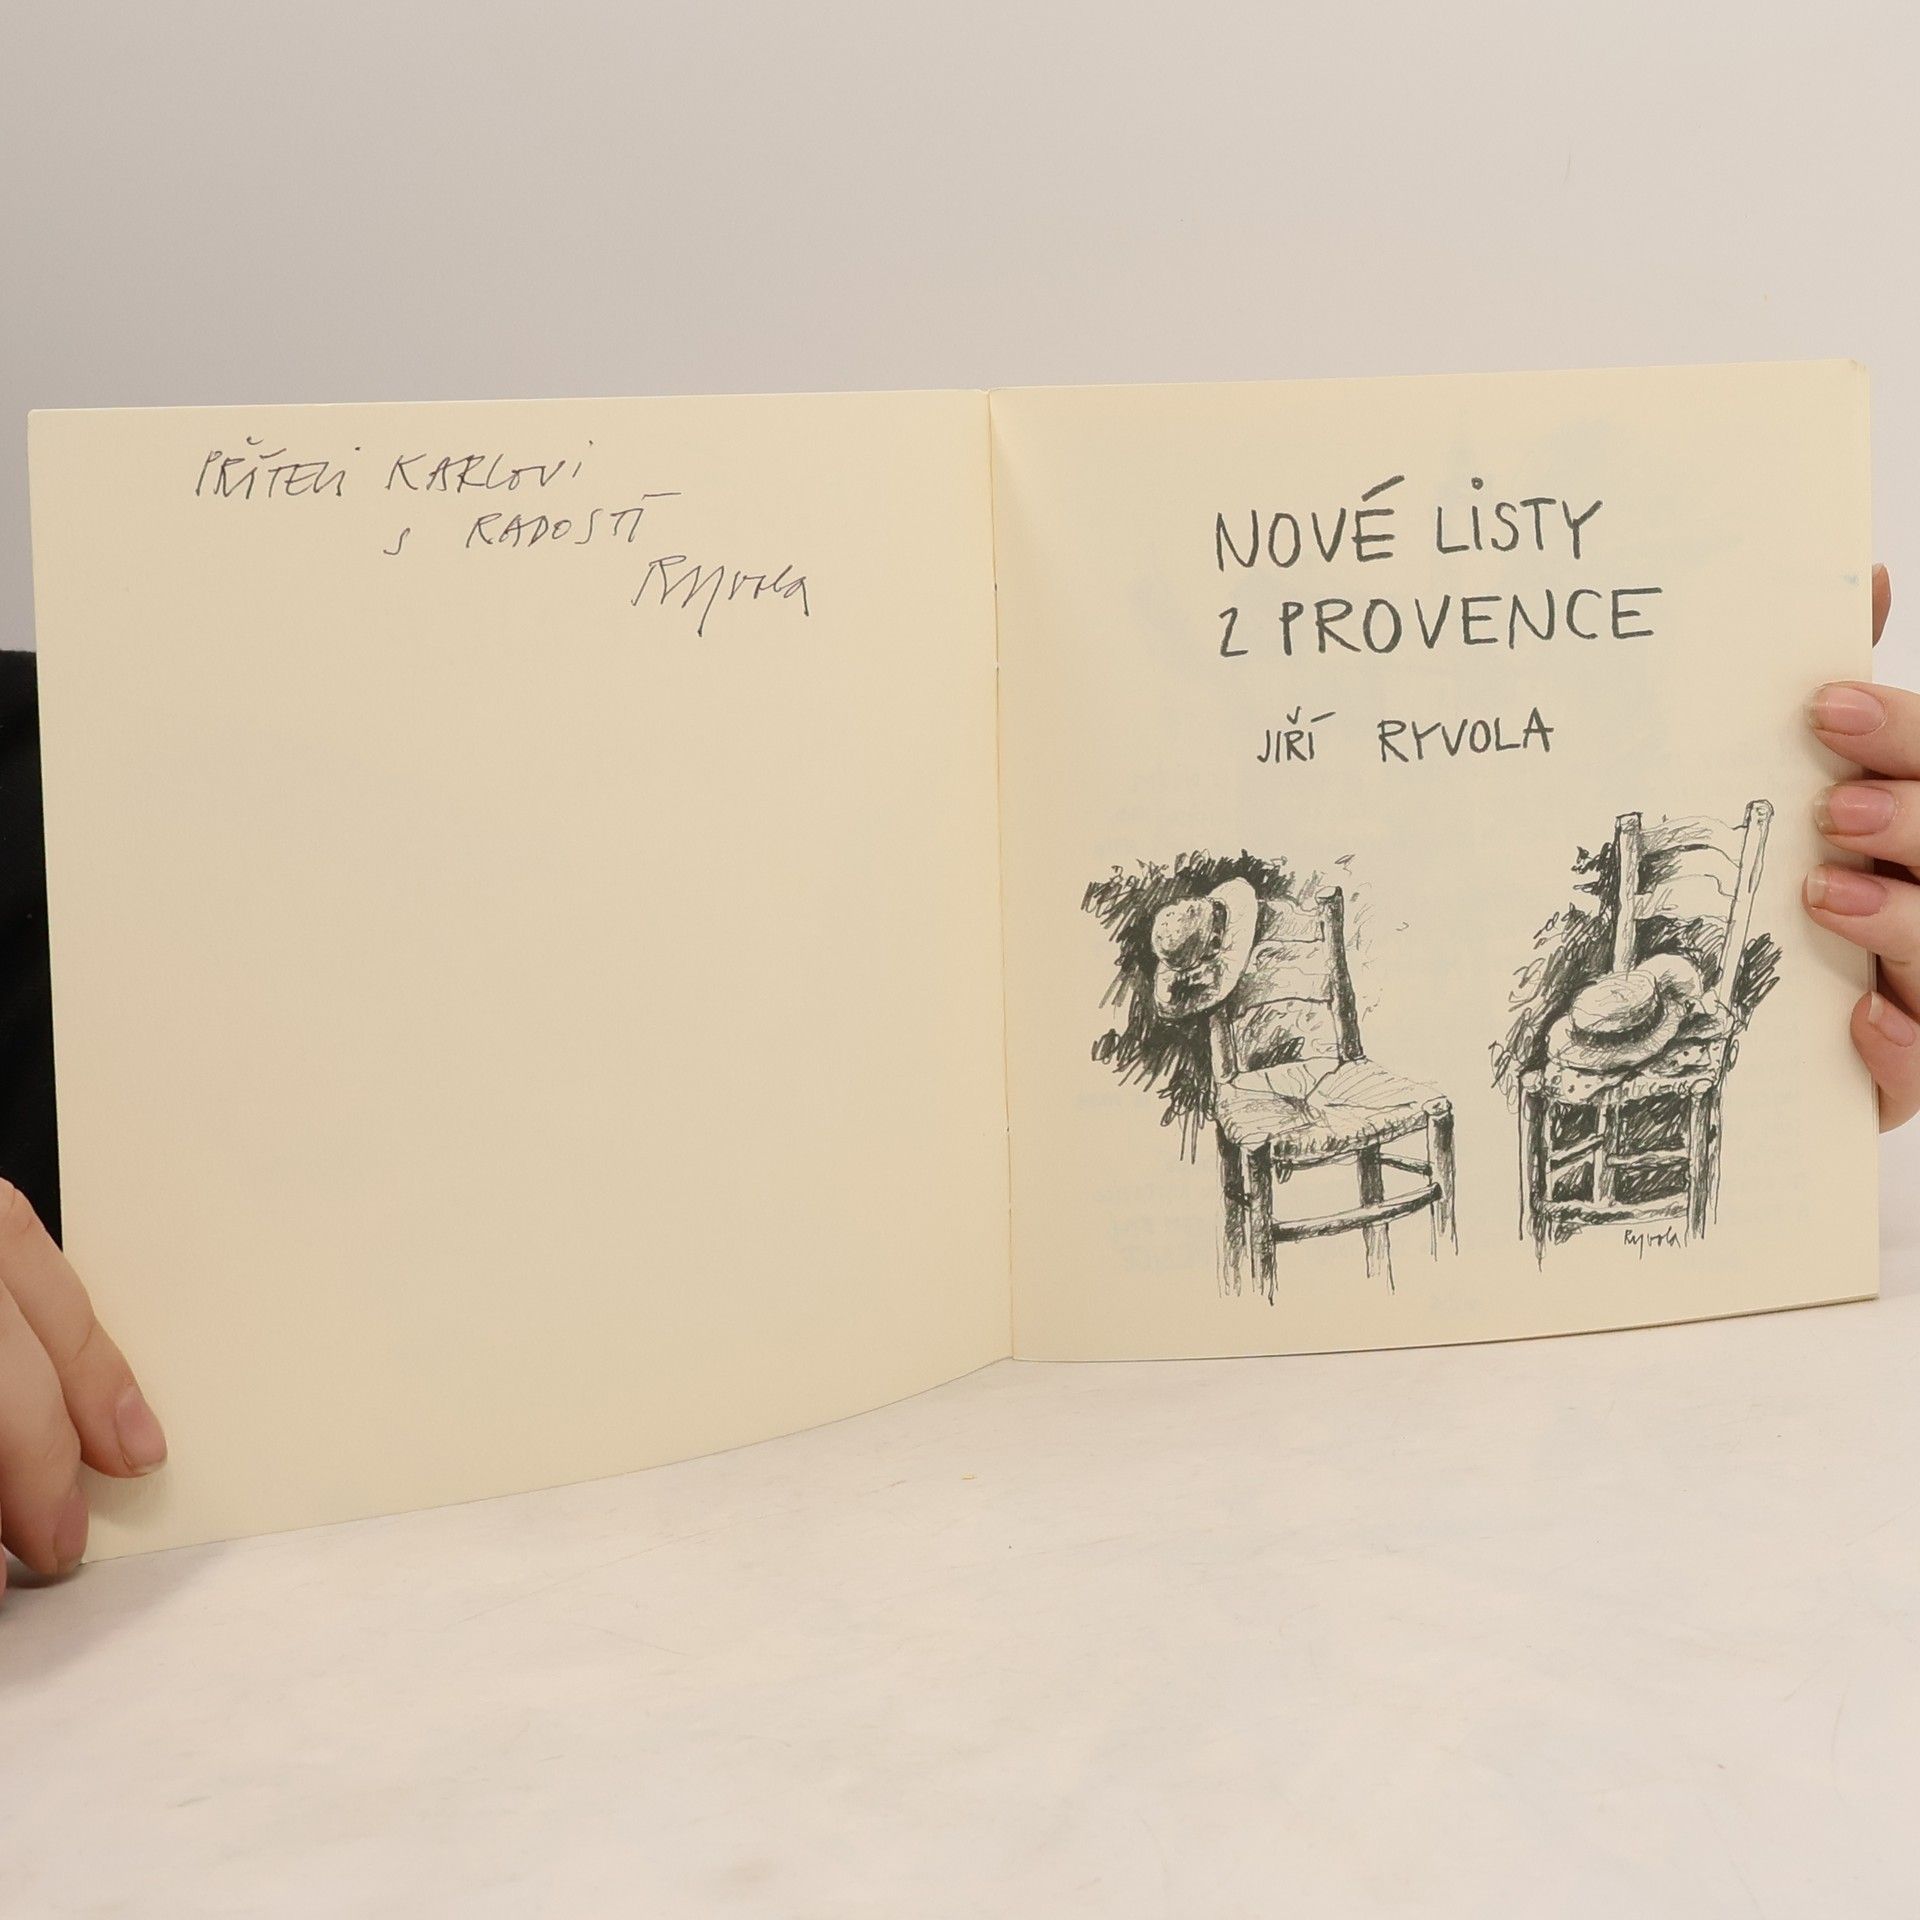 PŘÍTELI KARLOVI
S RADOSTÍ
Ryvola
NOVÉ LiSTY
Z PROVENCE
JIŘÍ RYVOLA
Ryvola